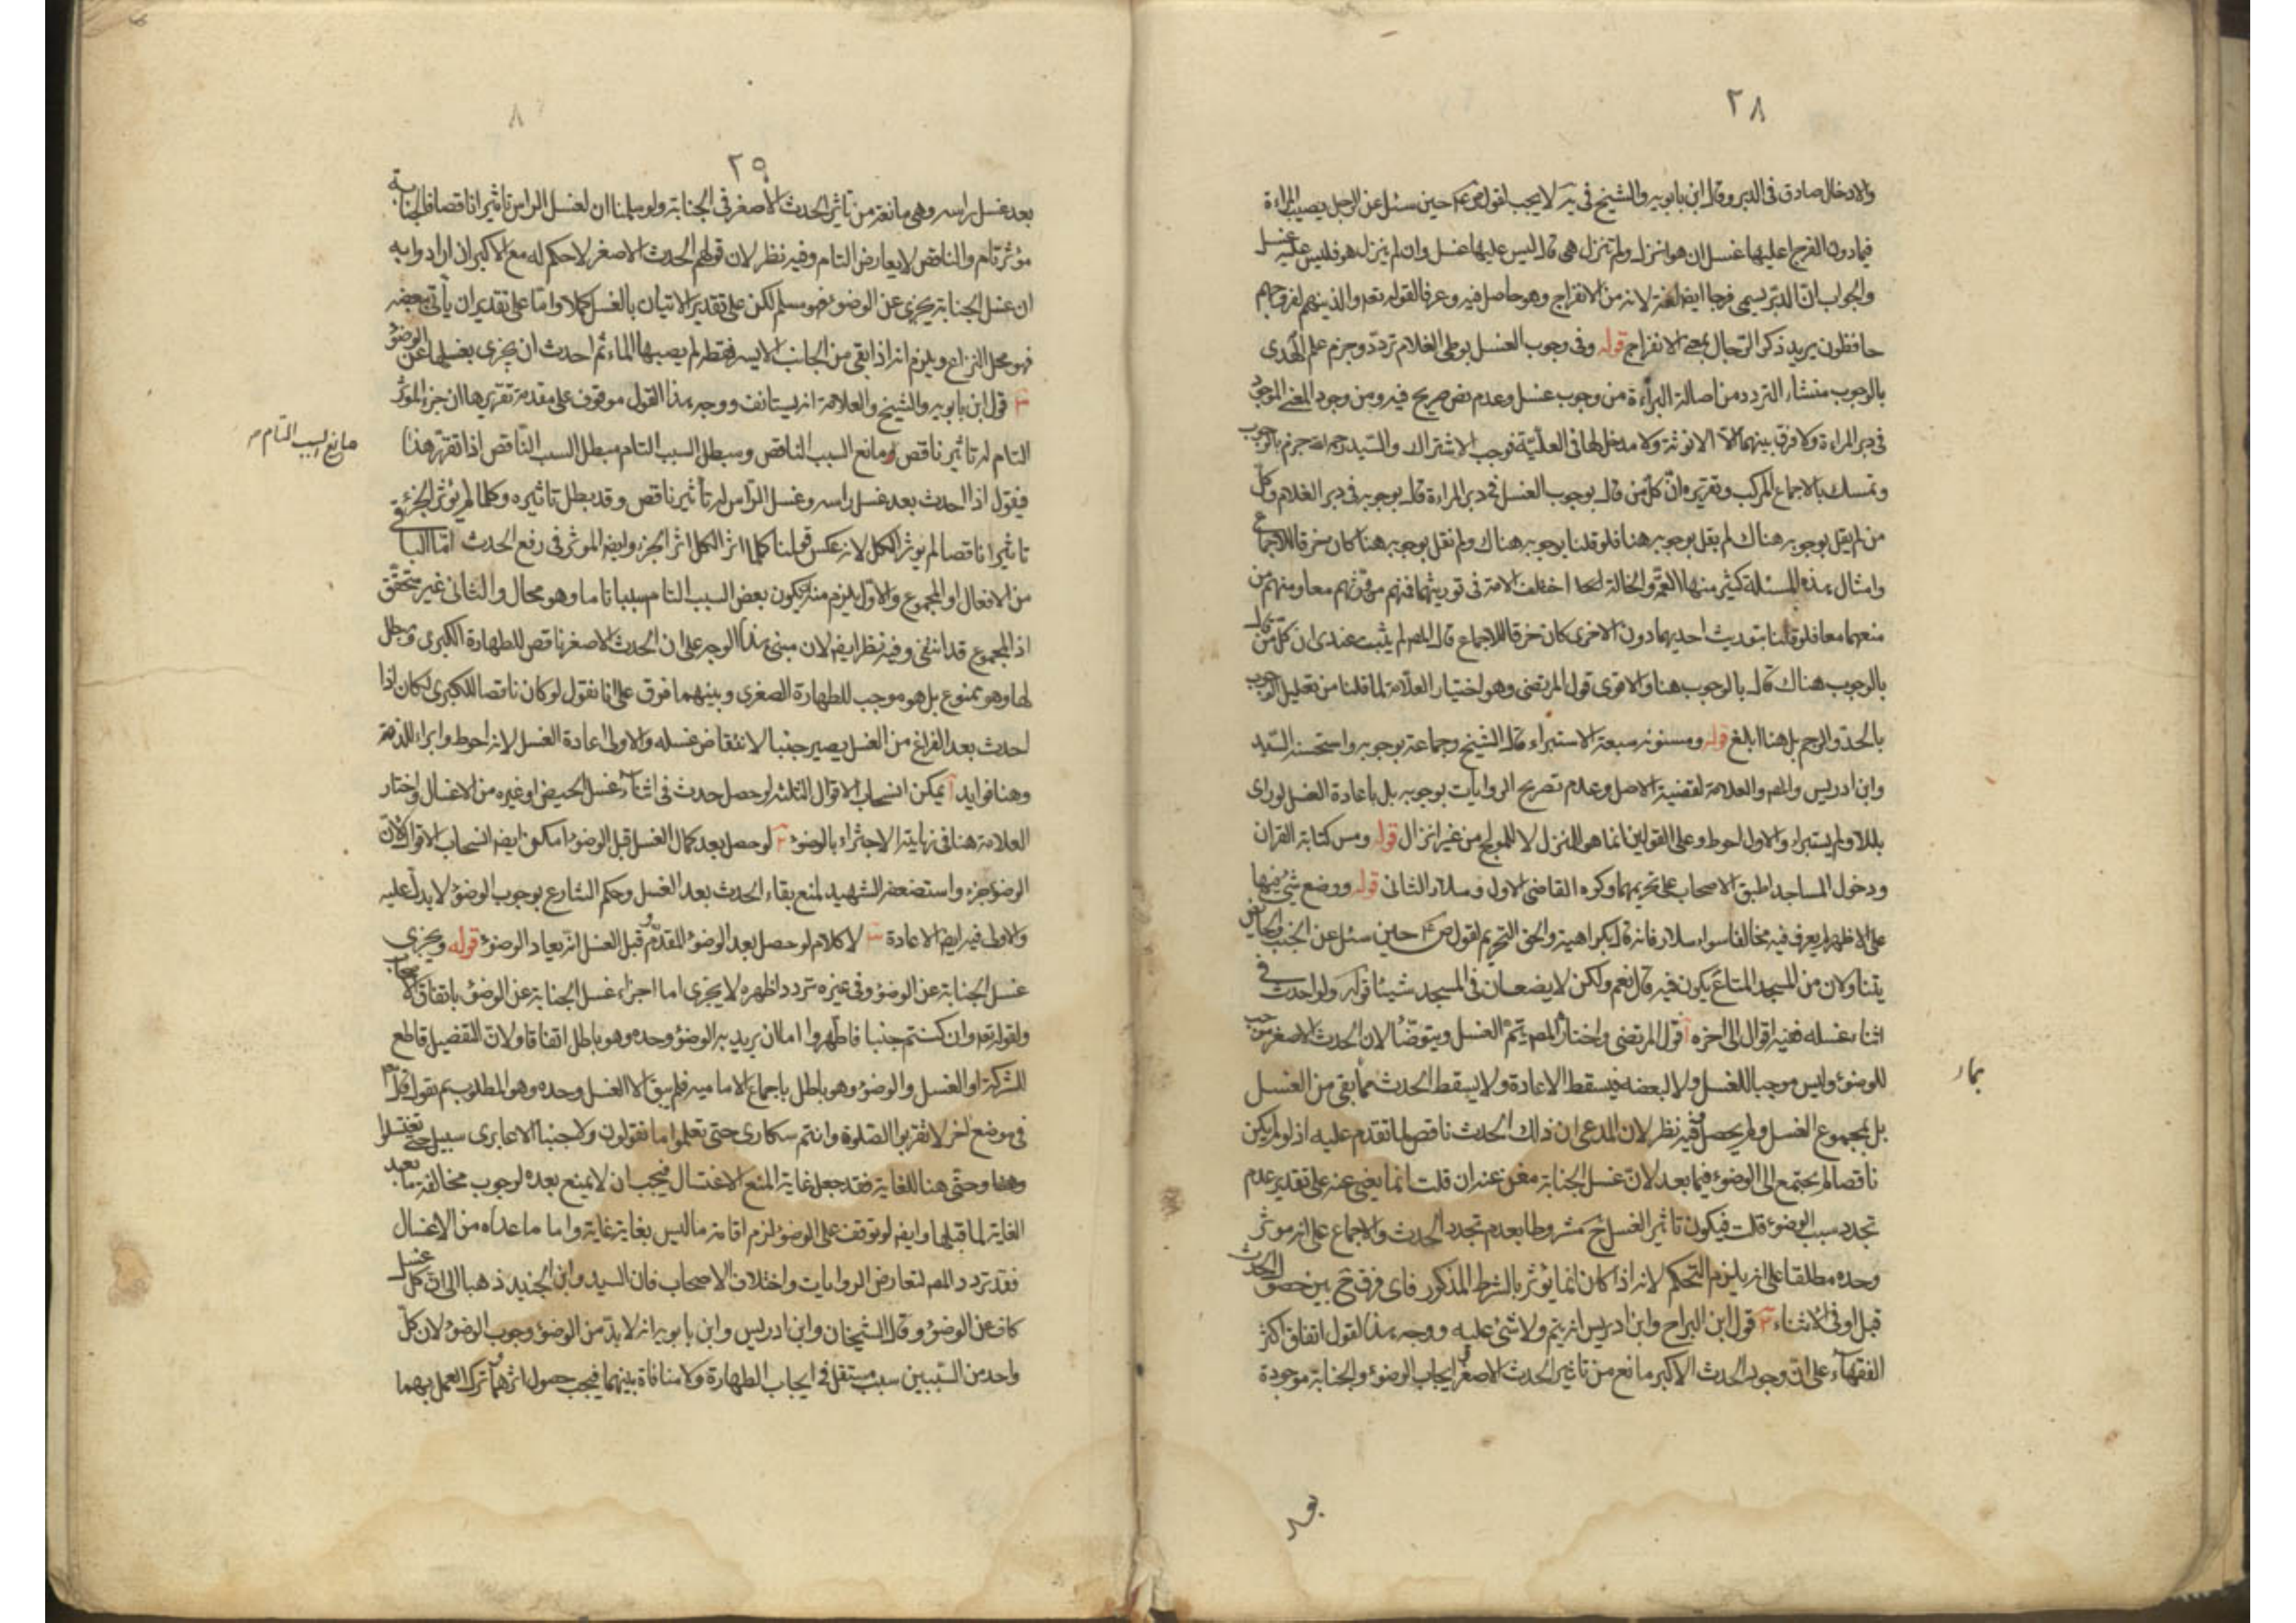 ٢٨
والادخال صادق فى الدبر وقال ابن بابويه والشيخ فى يه لا يجب لقول ص ع حين سئل عن الرجل يصيب المراءة
فيمادون الفرج اعليها غسل ان هو انزل ولم تنزل هى قال ليس عليها غسل وان لم ينزل هو فليس عليه غسل
والجواب انّ الدبر يسمى فرجا ايضا لغة لانه من الانفراج وهو حاصل فيه وعرفا لقوله تعه والذينهم لفروجهم
حافظون يريد ذكر الرّجال بمعنى الانفراج قوله وفى وجوب الغسل بوطى الغلام تردّد وجزم علم الهُدى
بالوجوب منشاء التردد من اصالة البراءة من وجوب غسل وعدم نص صريح فيه ومن وجود المعنى الموجود
فى دبر المراءة ولا فرق بينهما الّا الانوثة ولا مدخل لها فى العليّة فوجب الاشتراك والسّيد رحمه الله جزم بالوجوب
وتمسك بالاجماع المركب وتقريره انّ كلّ من قال بوجوب الغسل فى دبر المراءة قال بوجوبه فى دبر الغلام وكلّ
من لم يقل بوجوبه هناك لم يقل بوجوبه هنا فلو قلنا بوجوبه هناك ولم نقل بوجوبه هنا كان خرقا للاجماع
وامثال هذه المسئلة كثير منها العمّة والخالة اختلف الامة فى توريثهما فمنهم من ورّثهم معا ومنهم من
منعهما معا فلو قلنا بتوريث احديهما دون الاخرى كان خرقا للاجماع قال المص لم يثبت عندى ان كلّ من قال
بالوجوب هناك قال بالوجوب هنا والاقوى قول المرتضى وهو اختيار العلّامة لما قلنا من تعليل الوجوب
بالحدّ والرجم بل هنا ابلغ قوله ومسنونه سبعة الاستبراء قال الشيخ وجماعة بوجوبه واستحسنه السّيد
وابن ادريس والمص والعلامة لقضية الاصل وعدم تصريح الروايات بوجوبه بل باعادة الغسل لو راى
بللا ولم يستبراء والاول احوط وعلى القولين انما هو للمنزل لا للمولج من غير انزال قوله ومس كتابة القران
ودخول المساجد اطبق الاصحاب على تحريمهما وكره القاضى الاول وسلار الثانى قوله ووضع شئ فيها
على الاظهر لم يعرف فيه مخالفا سواء سلار فانه قال بكراهية والحق التحريم لقول ص ع حين سئل عن الجنب والحايض
يتناولان من المسجد المتاع يكون فيه قال نعم ولكن لا يضعان فى المسجد شيئا قوله ولو احدث فى
اثناء غسله ففيه اقوال الى اخره آ قول المرتضى واختاره المص يتمّ الغسل ويتوضّا لان الحدث الاصغر موجب
للوضؤ وليس موجبا للغسل ولا لبعضه فيسقط الاعادة ولا يسقط الحدث بما بقى من الغسل
بل بمجموع الغسل ولم يحصل وفيه نظر لان المدعى ان ذلك الحدث ناقص لما تقدم عليه اذ لو لم يكن
ناقصا لم يحتج معه الى الوضوء فيما بعد لانّ غسل الجنابة مغن عنه ان قلت انما يغنى عنه على تقدير عدم
تجدد سبب الوضوء قلت فيكون تاثير الغسل ح مشروطا بعدم تجدد الحدث والاجماع على انه موثر
وحده مطلقا على انه يلزم التحكم لانه اذا كان انما يؤثر بالشرط المذكور فاى فرق ح بين حصول الحدث
قبل او فى الاثناء ٢ قول ابن البراج وابن ادريس انه يتم ولا شئ عليه ووجه هذا القول اتفاق اكثر
الفقهاء على انّ وجود الحدث الاكبر مانع من تاثير الحدث الاصغر فى ايجاب الوضوء والجنابة موجودة
بما
بعد
٨
٢٩
بعد غسل راسه وهى مانعة من تاثير الحدث الاصغر فى الجنابة ولو سلمنا ان لغسل الراس تاثيرا ناقصا فالجنابة
مؤثر تام والناقص لا يعارض التام وفيه نظر لان قولهم الحدث الاصغر لا حكم له مع الاكبر ان ارادوا به
ان غسل الجنابة يجزى عن الوضوء فهو مسلم لكن على تقدير الاتيان بالغسل كملا وامّا على تقدير ان يأتى ببعضه
فهو محل النزاع ويلزم انه اذا بقى من الجانب الايسر فقط لم يصبها الماء ثم احدث ان يجزى بغسلها عن الوضؤ
٣ قول ابن بابويه والشيخ والعلامة انه يستانف ووجه هذا القول موقوف على مقدمة تقريرها ان جزء الموثر
التام له تاثير ناقص ومانع السبب الناقص ومبطل السبب التام مبطل السبب النّاقص اذا تقرر هذا
مانع السبب التام
فيقول اذا احدث بعد غسل راسه وغسل الرّاس له تأثير ناقص وقد بطل تاثيره وكلما لم يؤثر الجزئى
تاثيرا ناقصا لم يوثر الكل لانه عكس قولنا كلما اثر الكل اثر الجزء وايضا الموثر فى رفع الحدث امّا الباقى
من الافعال او المجموع والاول يلزم منه ان يكون بعض السبب التام سببا تاما وهو محال والثانى غير متحقق
اذ المجموع قد انتفى وفيه نظر ايضا لان مبنى هذا الوجه على ان الحدث الاصغر ناقص للطهارة الكبرى ومبطل
لها وهو ممنوع بل هو موجب للطهارة الصغرى وبينهما فرق على انا نقول لو كان ناقصا للكبرى لكان اذا
احدث بعد الفراغ من الغسل يصير جنبا لانتقاض غسله والاولى اعادة الغسل لانه احوط وابراء للذمة
وهنا فوايد آ يمكن انسحاب الاقوال الثلثة لو حصل حدث فى اثناء غسل الحيض او غيره من الاغسال واختار
العلامة هنا فى نهايته الاجتزاء بالوضؤ ٢ لو حصل بعد كمال الغسل قبل الوضؤ امكن ايضا انسحاب الاقوال لانّ
الوضؤ جزء واستضعفه الشهيد لمنع بقاء الحدث بعد الغسل وحكم الشارع بوجوب الوضؤ لا يدلّ عليه
والاولى فيه ايضا الاعادة ٣ لا كلام لو حصل بعد الوضؤ المقدّم وقبل الغسل انه يعاد الوضؤ قوله ويجزى
غسل الجنابة عن الوضؤ وفى غيره تردد اظهره لا يجزى اما اجزاء غسل الجنابة عن الوضؤ باتفاق الاصحاب
ولقوله تعه وان كنتم جنبا فاطهروا اما ان يريد به الوضؤ وحده وهو باطل اتفاقا ولانّ التفصيل قاطع
للشركة او الغسل والوضؤ وهو باطل باجماع الامامية فلم يبق الا الغسل وحده وهو المطلوب ثم نقول قال تعه
فى موضع اخر لا تقربوا الصلوة وانتم سكارى حتى تعلموا ما تقولون ولا جنبا الا عابرى سبيل حتى تغتسلوا
وحتى هنا للغاية فقد جعل غاية المنع الاغتسال فيجب ان لا يمنع بعده لوجوب مخالفة ما بعد
الغاية لما قبلها وايضا لو توقف على الوضؤ لزم اقامة ما ليس بغاية غاية واما ما عداه من الاغسال
فقد تردد المص لتعارض الروايات واختلاف الاصحاب فان السيد وابن الجنيد ذهبا الى ان كل غسل
كاف عن الوضؤ وقال الشيخان وابن ادريس وابن بابويه انه لا بدّ من الوضؤ وجوب الوضؤ لان كلّ
واحد من السّببين سبب مستقل فى ايجاب الطهارة ولا منافاة بينهما فيجب حصول اثرهما وترك العمل بهما